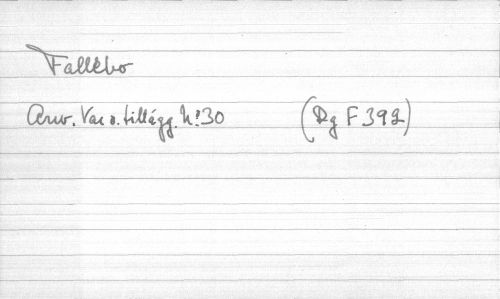 Fallebo
Arw. Var o. tillägg. No 30 (Dg F 392)